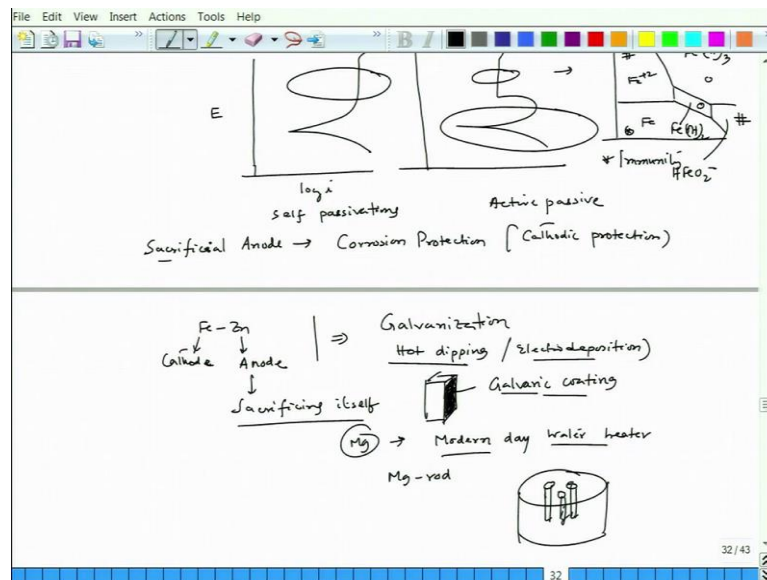 File Edit View Insert Actions Tools Help
E
log i
self passivations
Active passive
Fe+2
Fe
Fe(OH)2
* Immunity
HFeO2-
#
#
Sacrificial Anode → Corrosion Protection (Cathodic protection)
Fe - Zn
Cathode Anode
Sacrificing itself
⇒ Galvanization
Hot dipping / Electrodeposition)
Galvanic coating
Mg → Modern day water heater
Mg-rod
32 / 43
32